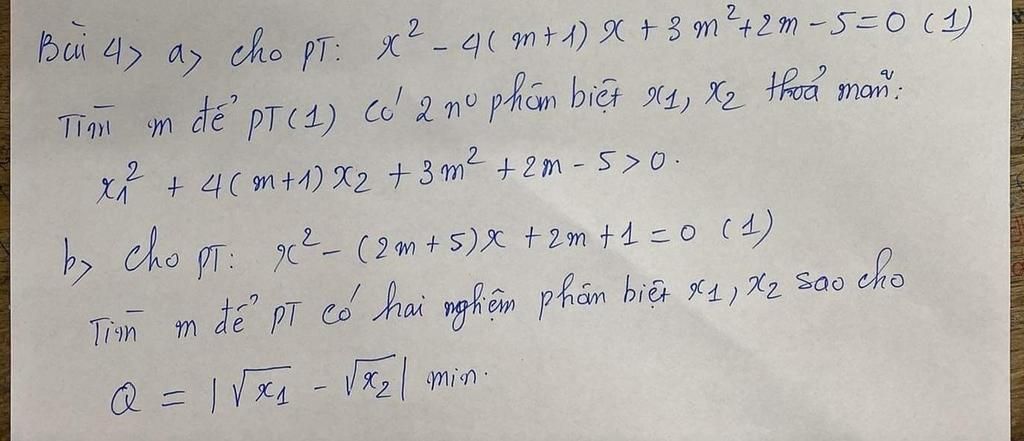 Bài 4> a> cho PT: x² - 4(m+1)x + 3m² + 2m - 5 = 0 (1)
Tìm m để PT(1) có 2 nº phân biệt x₁, x₂ thoả mãn:
x₁² + 4(m+1)x₂ + 3m² + 2m - 5 > 0.
b> cho PT: x² - (2m+5)x + 2m + 1 = 0 (1)
Tìm m để PT có hai nghiệm phân biệt x₁, x₂ sao cho
Q = |√x₁ - √x₂| min.